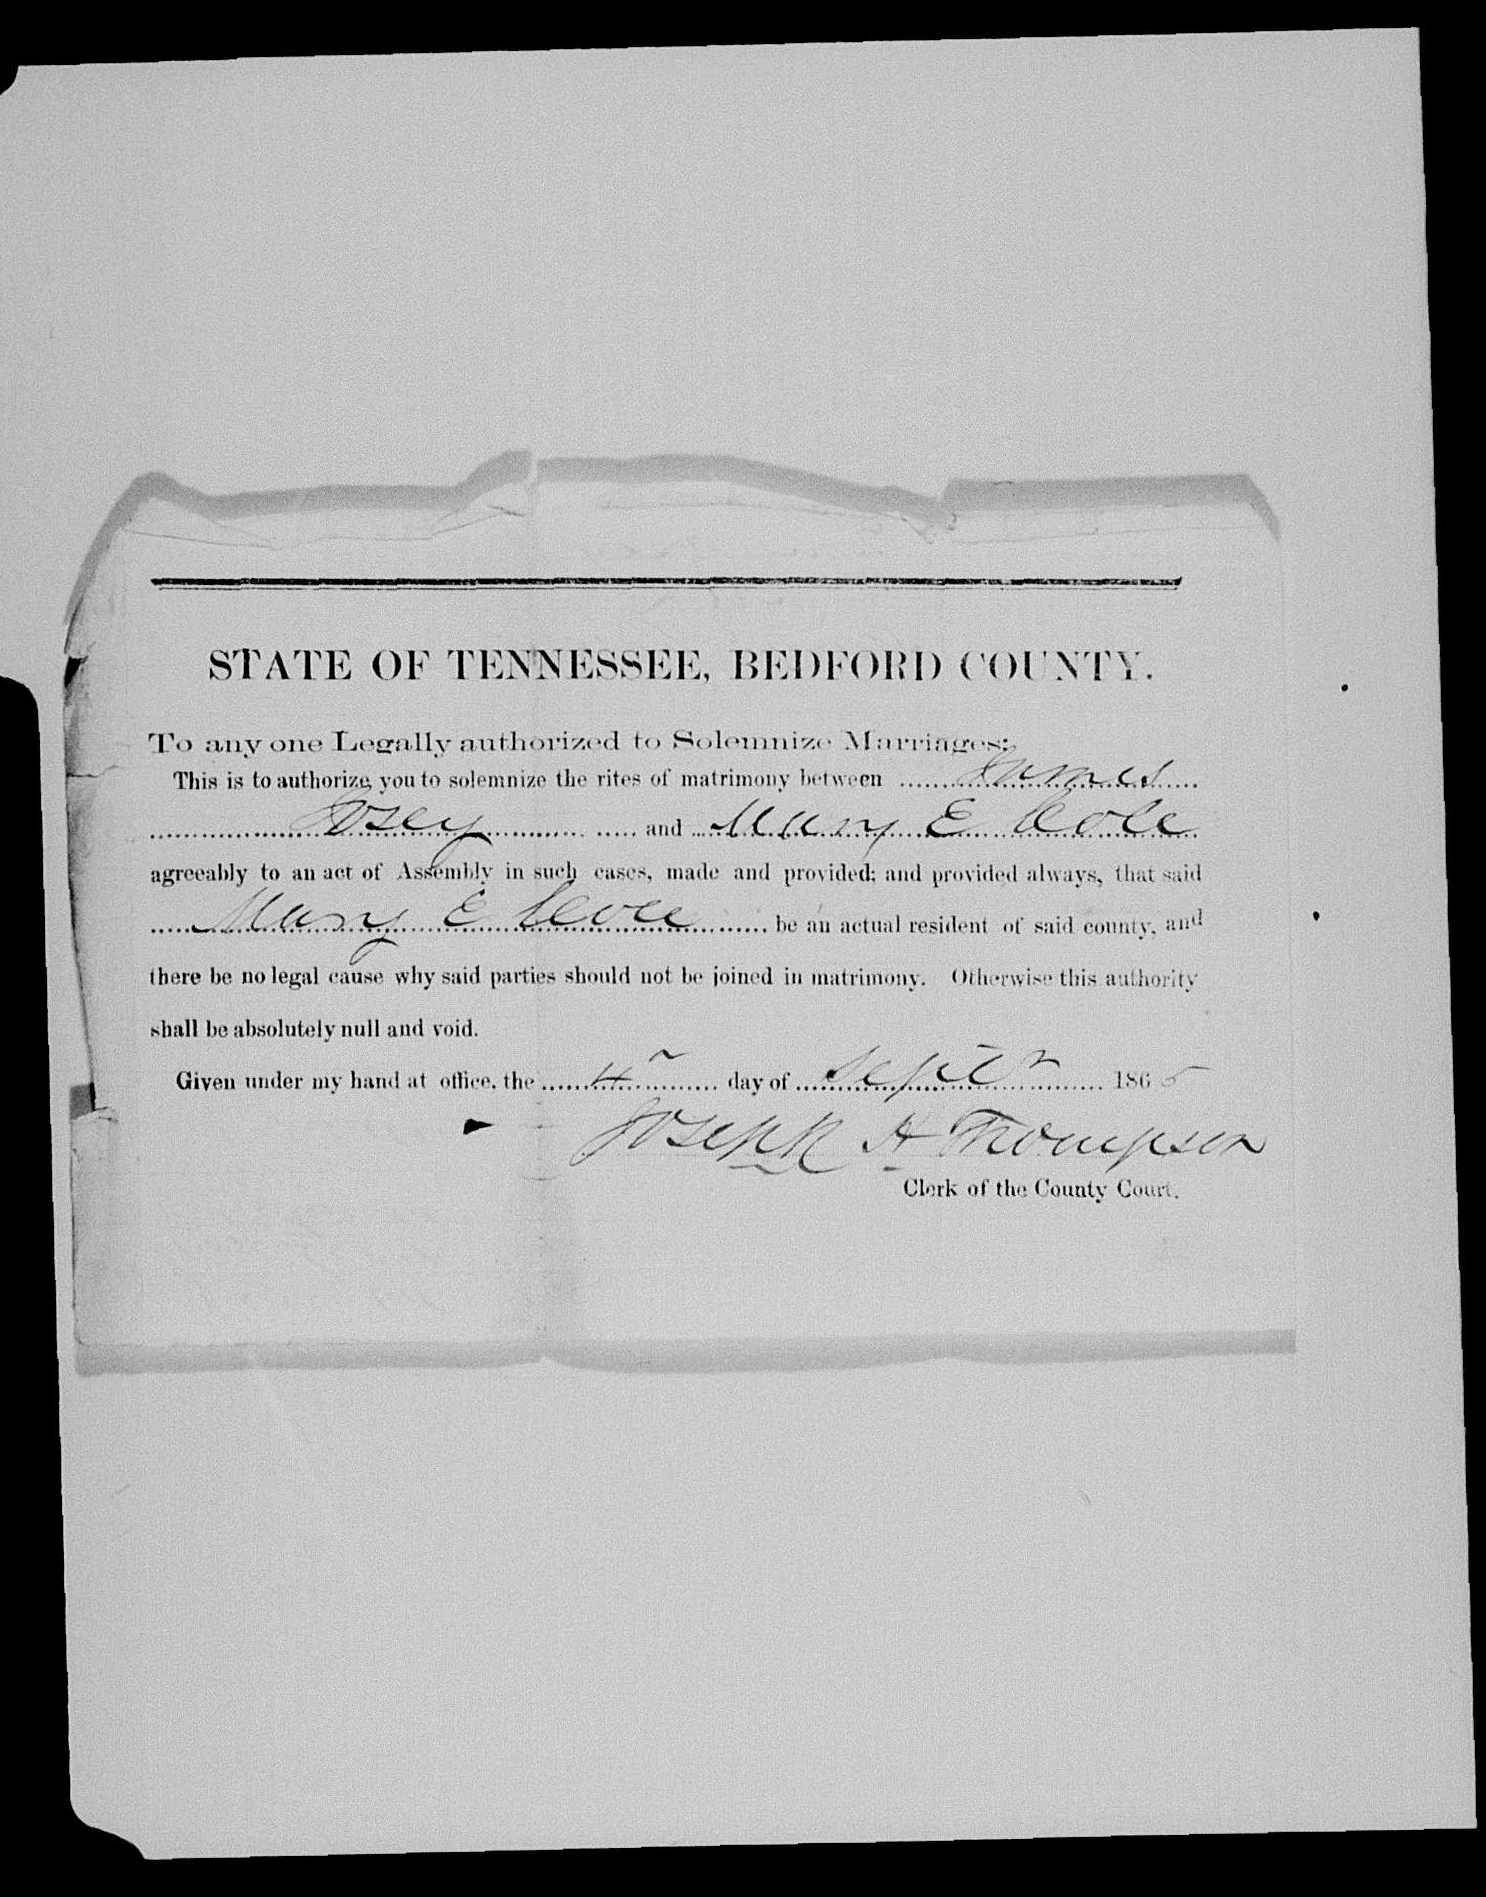 STATE OF TENNESSEE, BEDFORD COUNTY.
To any one Legally authorized to Solemnize Marriages:
This is to authorize you to solemnize the rites of matrimony between James
Josey and Mary E Cole
agreeably to an act of Assembly in such cases, made and provided; and provided always, that said
Mary E Cole be an actual resident of said county, and
there be no legal cause why said parties should not be joined in matrimony. Otherwise this authority
shall be absolutely null and void.
Given under my hand at office, the 4 day of Septr 1865
Joseph H Thompson
Clerk of the County Court.